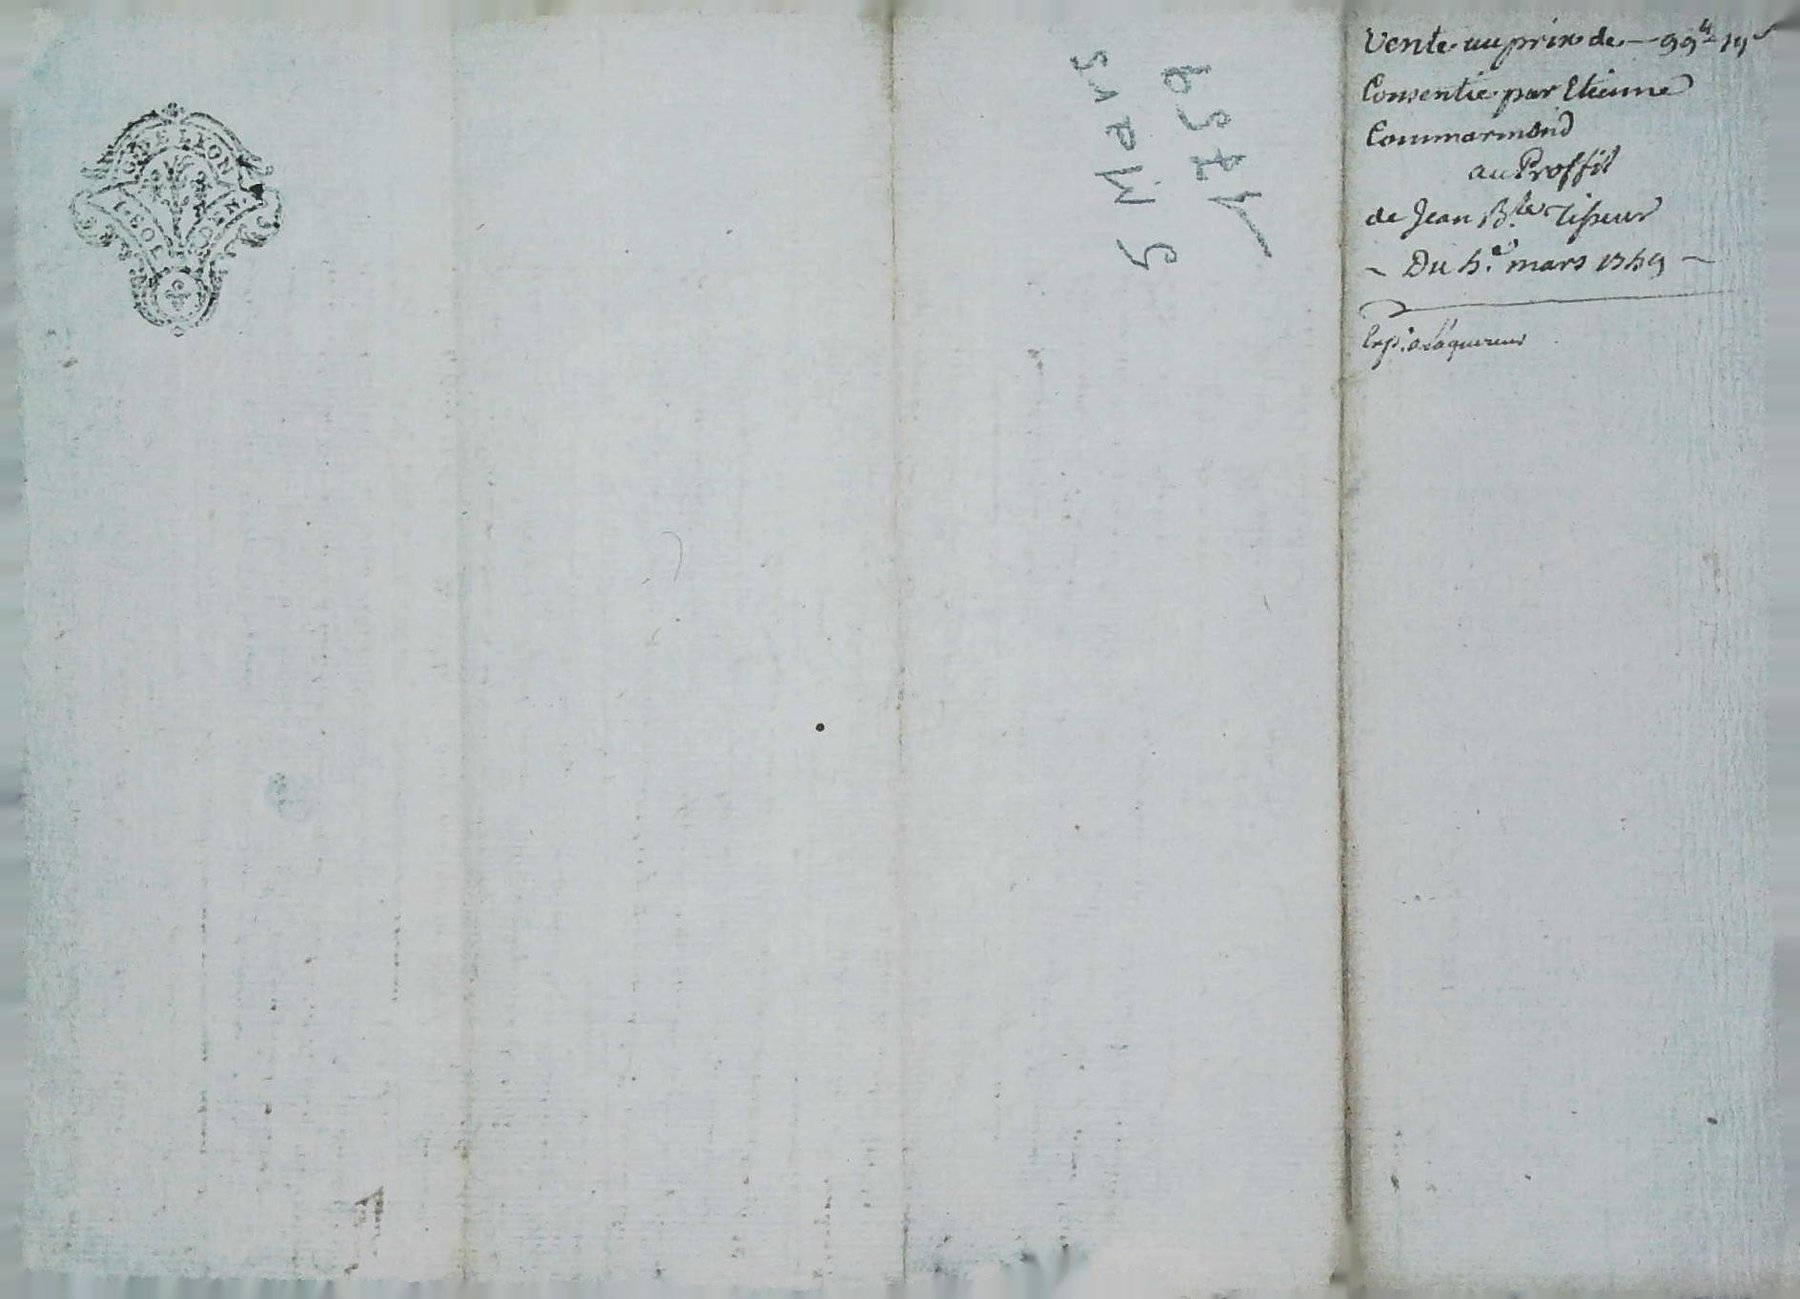 G. DE LYON
I. SOL
5 Mars
1759
Vente au prix de — 99# 19s
Consentie par Etienne
Commarmond
au Proffit
de Jean B.te Tisseur
~ Du 5.e mars 1759 ~
Exp.on acquereur